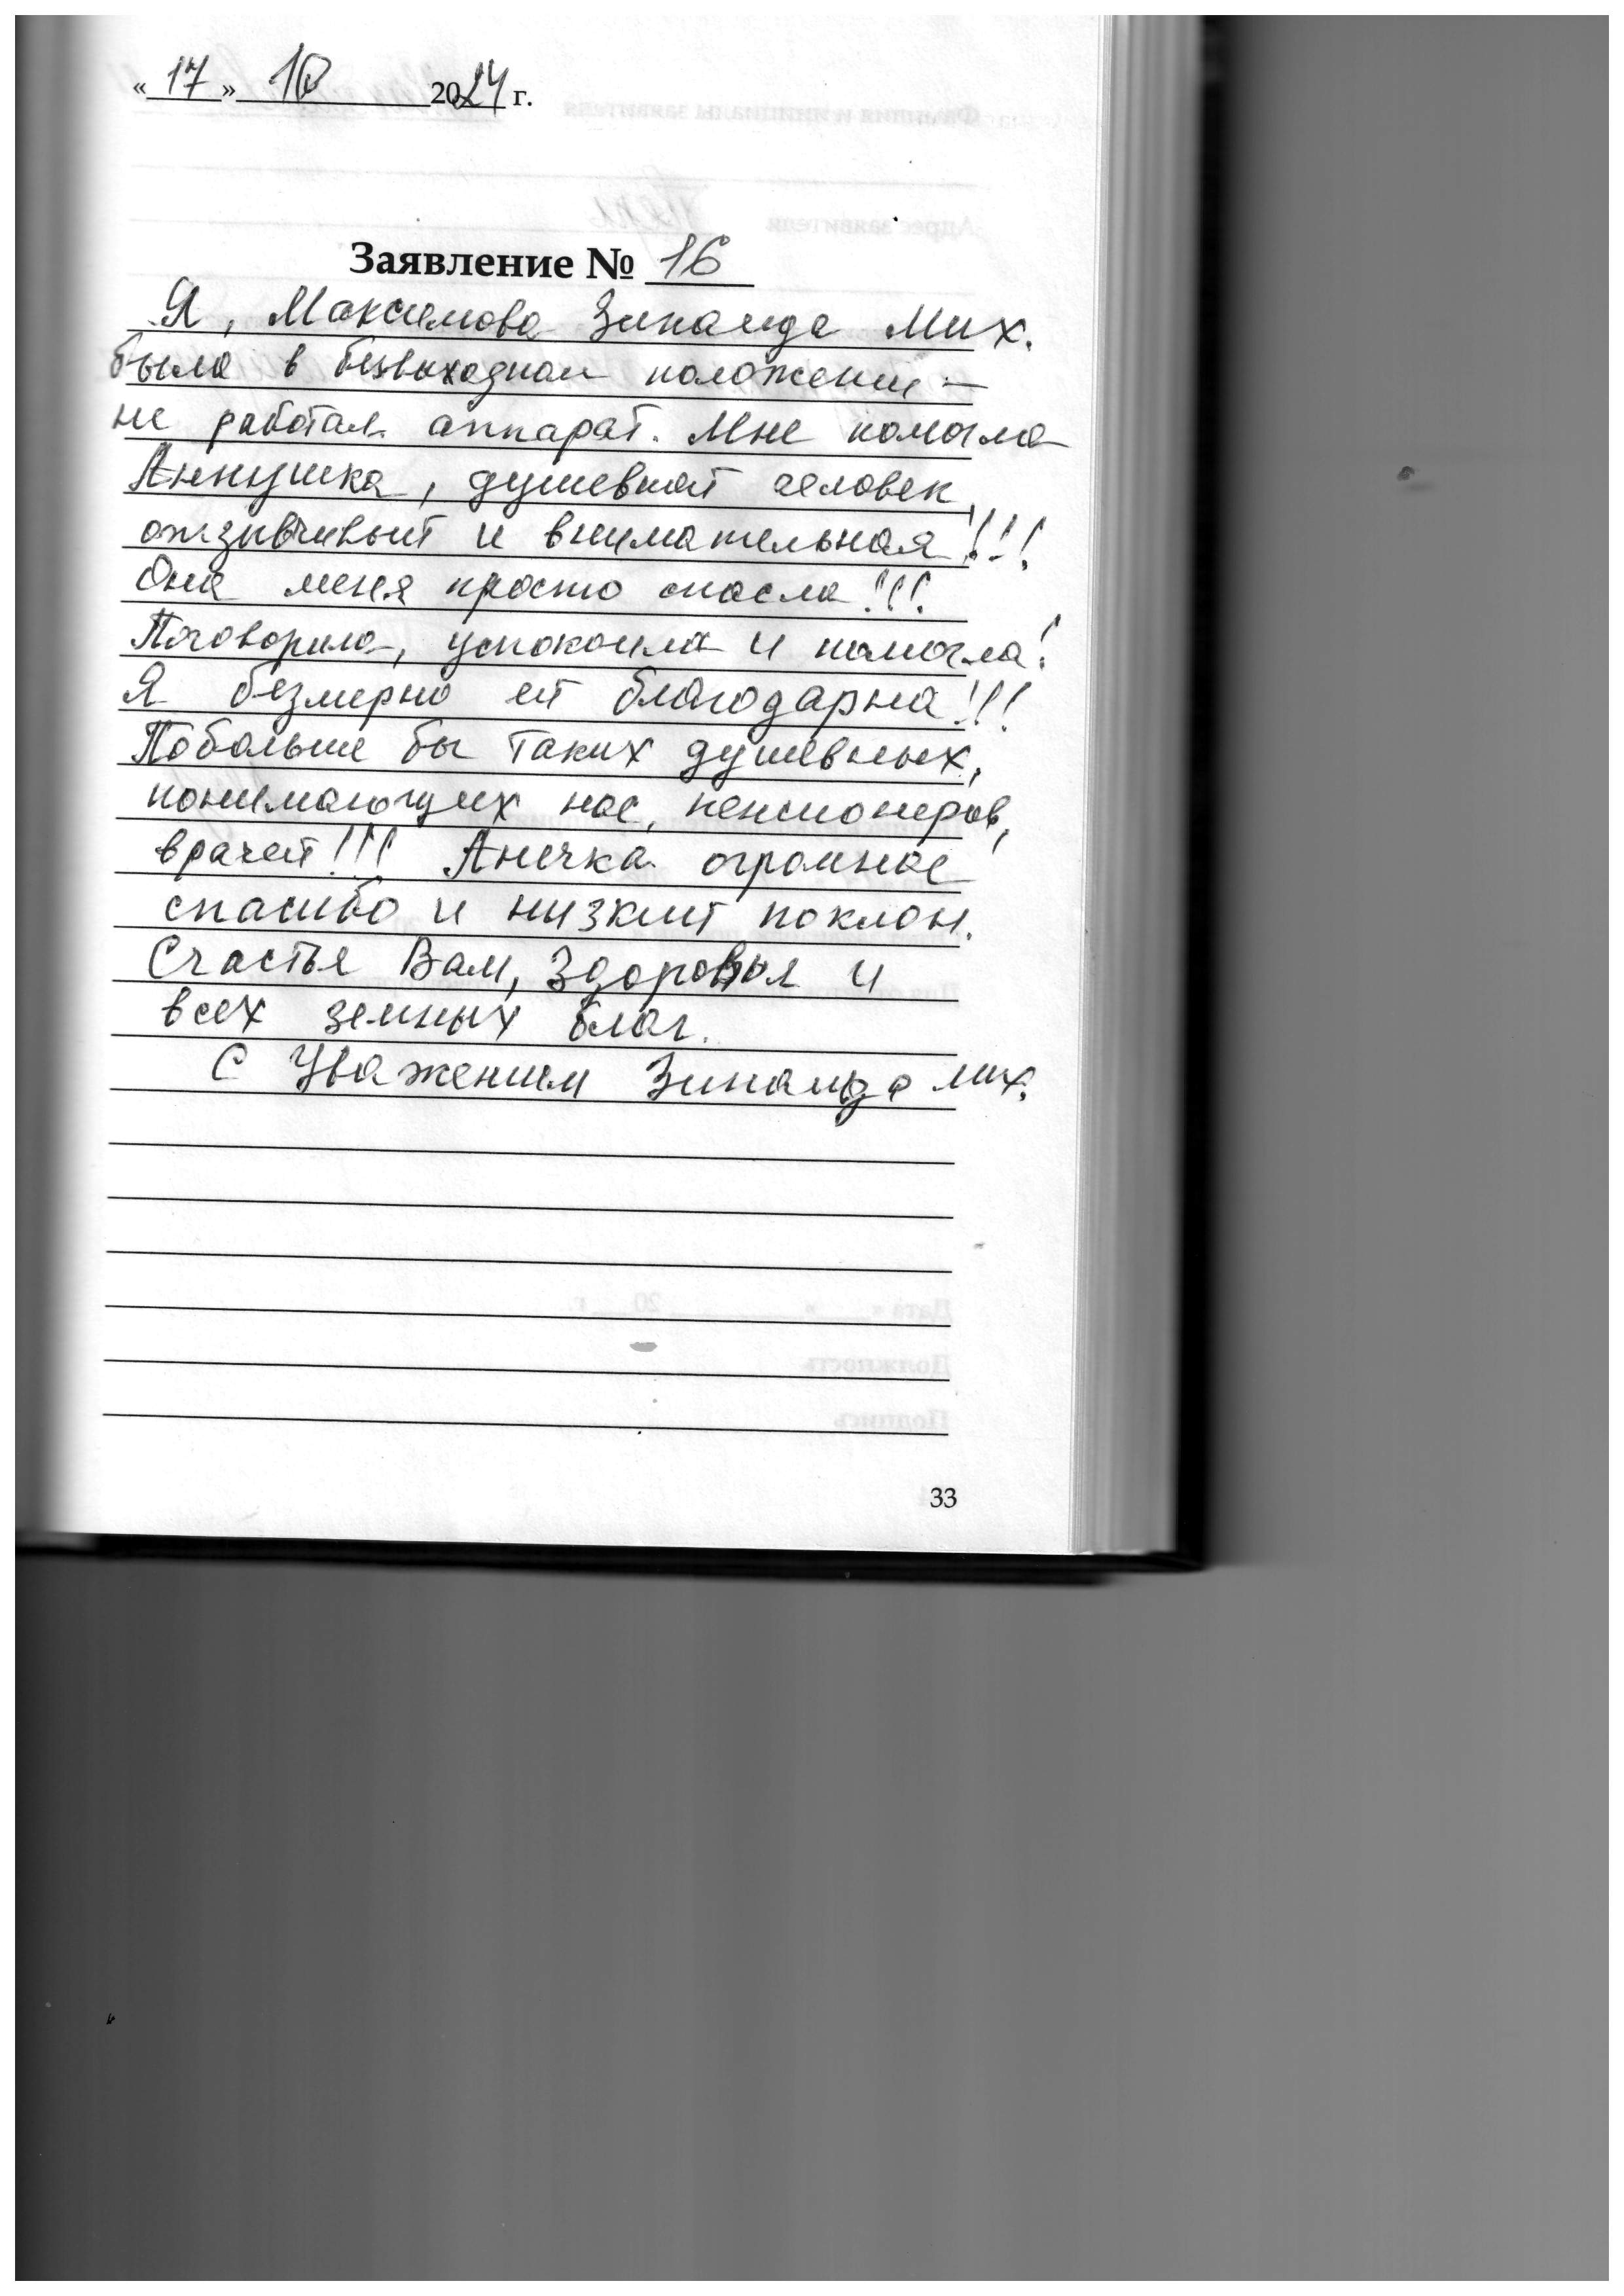 «17» 10 2024 г.
Заявление № 16
Я, Максимова Зинаида Мих.
была в безвыходном положении –
не работал аппарат. Мне помогла
Аннушка, душевной человек,
отзывчивый и внимательная!!!
Она меня просто спасла!!!
Поговорила, успокоила и помогла!
Я безмерно ей благодарна!!!
Побольше бы таких душевных,
понимающих нас, пенсионеров,
врачей!!! Анечка огромное
спасибо и низкий поклон.
Счастья Вам, Здоровья и
всех земных благ.
С Уважением Зинаида Мих.
33